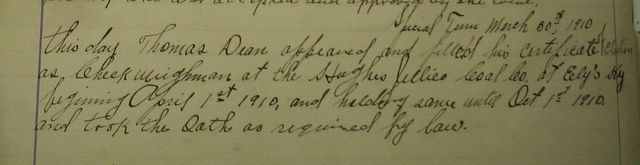 was accepted and approved by the Court.
Special Term March 30th, 1910
This day Thomas Dean appeared and filled his certificate Election
as Checkweighman at the Hughes Jellico Coal Co. at Ely's Ky
begining April 1st 1910, and holding same until Oct 1st 1910.
and took the Oath as required by law.